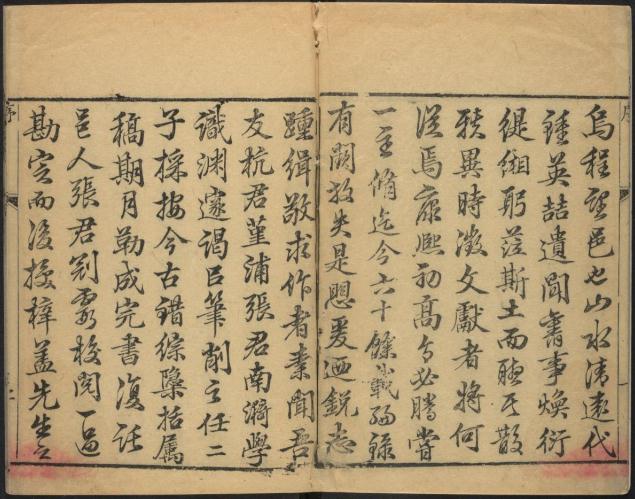 烏程望邑也山水清遠代
鍾英喆遺聞舊事煥衍
緹緗躬蒞斯土而聽其散
軼異時徵文獻者將何
從焉康熙初高令必騰嘗
一主脩迄今六十餘載紀錄
有闕放失是懼爰迺銳志
踵緝敬求作者素聞吾
友杭君堇浦張君南漪學
識淵邃謁已筆削之任二
子採按今古錯綜檃括属
稿期月勒成完書復託
邑人張君剡校閱一過
勘定而後授梓蓋先生之
序
序